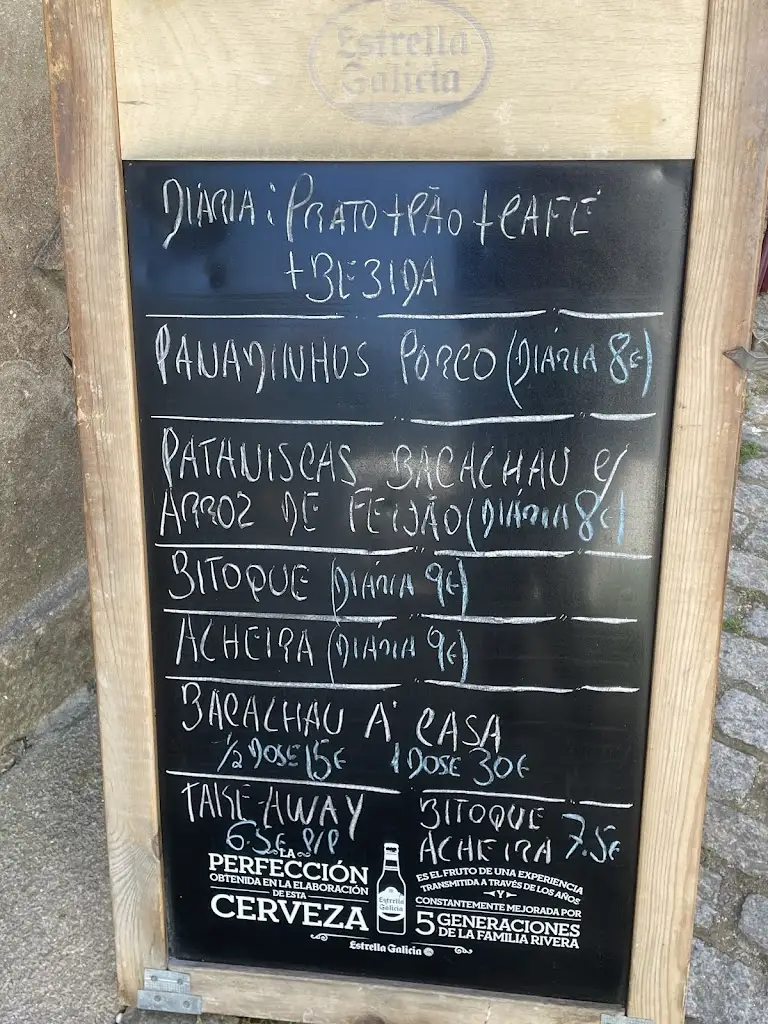 Estrella
Galicia
DIÁRIA: PRATO + PÃO + CAFÉ
+ BEBIDA
PANADINHOS PORCO (DIÁRIA 8€)
PATANISCAS BACALHAU C/
ARROZ DE FEIJÃO (DIÁRIA 8€)
BITOQUE (DIÁRIA 9€)
ALHEIRA (DIÁRIA 9€)
BACALHAU A' CASA
1/2 DOSE 15€ 1 DOSE 30€
TAKE-AWAY
6.5€ P/P
BITOQUE
ALHEIRA 7.5€
LA
PERFECCIÓN
OBTENIDA EN LA ELABORACIÓN
DE ESTA
CERVEZA
Estrella
Galicia
ES EL FRUTO DE UNA EXPERIENCIA
TRANSMITIDA A TRAVÉS DE LOS AÑOS
Y
CONSTANTEMENTE MEJORADA POR
5 GENERACIONES
DE LA FAMILIA RIVERA
Estrella Galicia